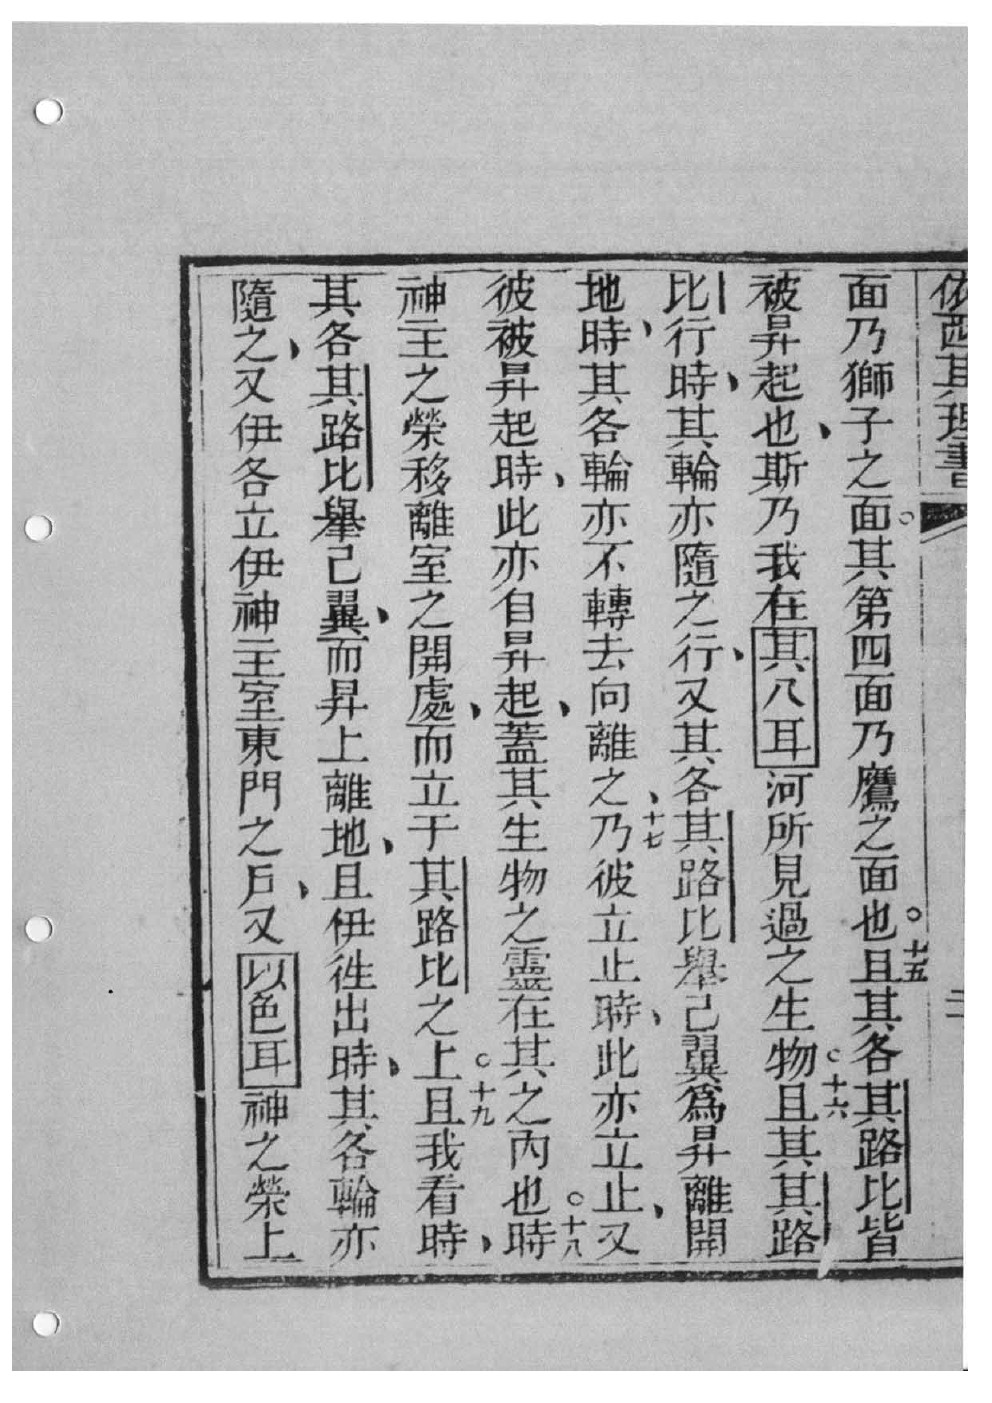 依西其理書
二
面乃獅子之面○其第四面乃鷹之面也○十五且其各其路比皆
被昇起也、斯乃我在其八耳河所見過之生物○十六且其其路
比行時、其輪亦隨之行、又其各其路比舉己翼爲昇離開
地、時其各輪亦不轉去向離之、十七乃彼立止時、此亦立止、又
彼被昇起時、此亦自昇起、蓋其生物之靈在其之內也○十八時
神主之榮移離室之開處、而立于其路比之上○十九且我看時、
其各其路比舉己翼、而昇上離地、且伊徃出時、其各輪亦
隨之、又伊各立伊神主室東門之戶、又以色耳神之榮上